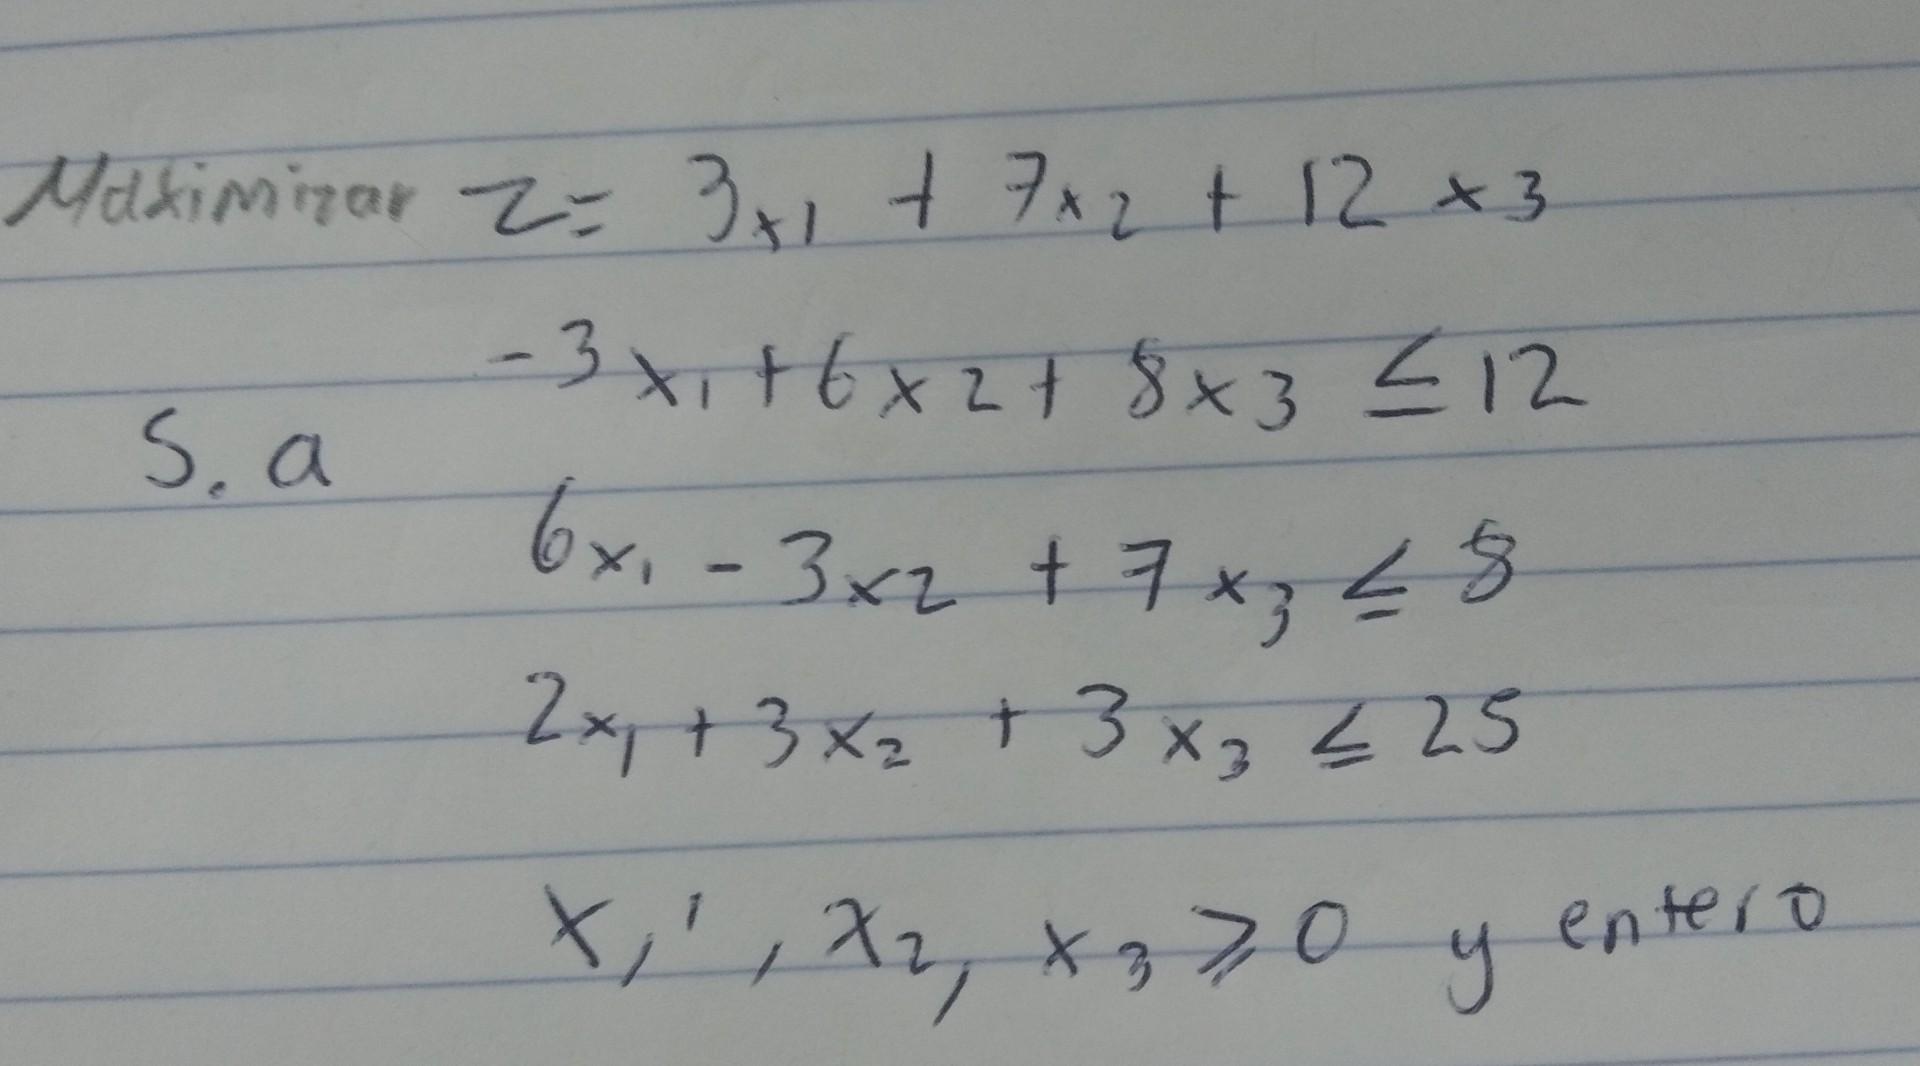 Maximizar Z= 3x1 + 7x2 + 12x3
-3x1 + 6x2 + 8x3 ≤ 12
S. a
6x1 - 3x2 + 7x3 ≤ 8
2x1 + 3x2 + 3x3 ≤ 25
x1', x2, x3 ≥ 0 y entero